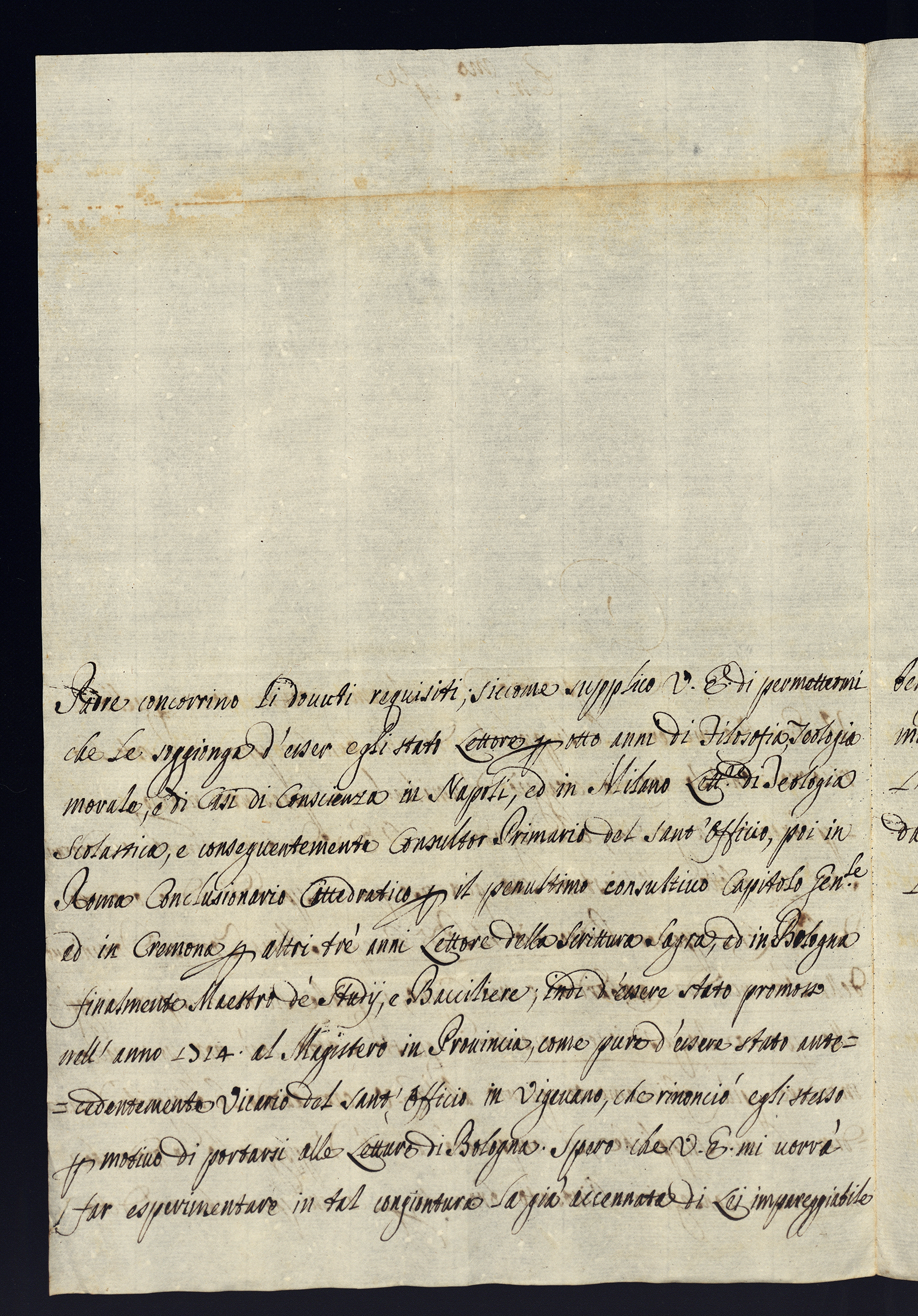 Padre concorrino li douuti requisiti; siccome supplico V. E. di permettermi
che Le soggionga d'esser egli stato Lettore p otto anni di Filosofia, Teologia
morale, e di Casi di Conscienza in Napoli, ed in Milano Lett.re di Teologia
Scolastica, e conseguentemente Consultor Primario del Sant'Officio, poi in
Roma Conclusionario Cattedratico p il penultimo consultiuo Capitolo Gen.le
ed in Cremona p altri trè anni Lettore della Scrittura Sagra, ed in Bologna
finalmente Maestro de Studij, e Bacciliere; indi d'essere stato promosso
nell'anno 1724. al Magistero in Prouincia, come pure d'essere stato ante=
=cedentemente Vicario del Sant'Officio in Vigeuano, che rinonciò egli stesso
p motiuo di portarsi alle Letture di Bologna. Spero che V. E. mi uorrà
far esperimentare in tal congiontura la già accennata di Lei impareggiabile